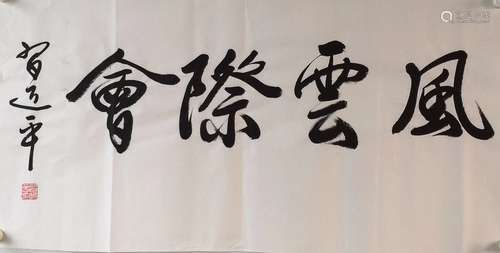 風雲際會
習近平